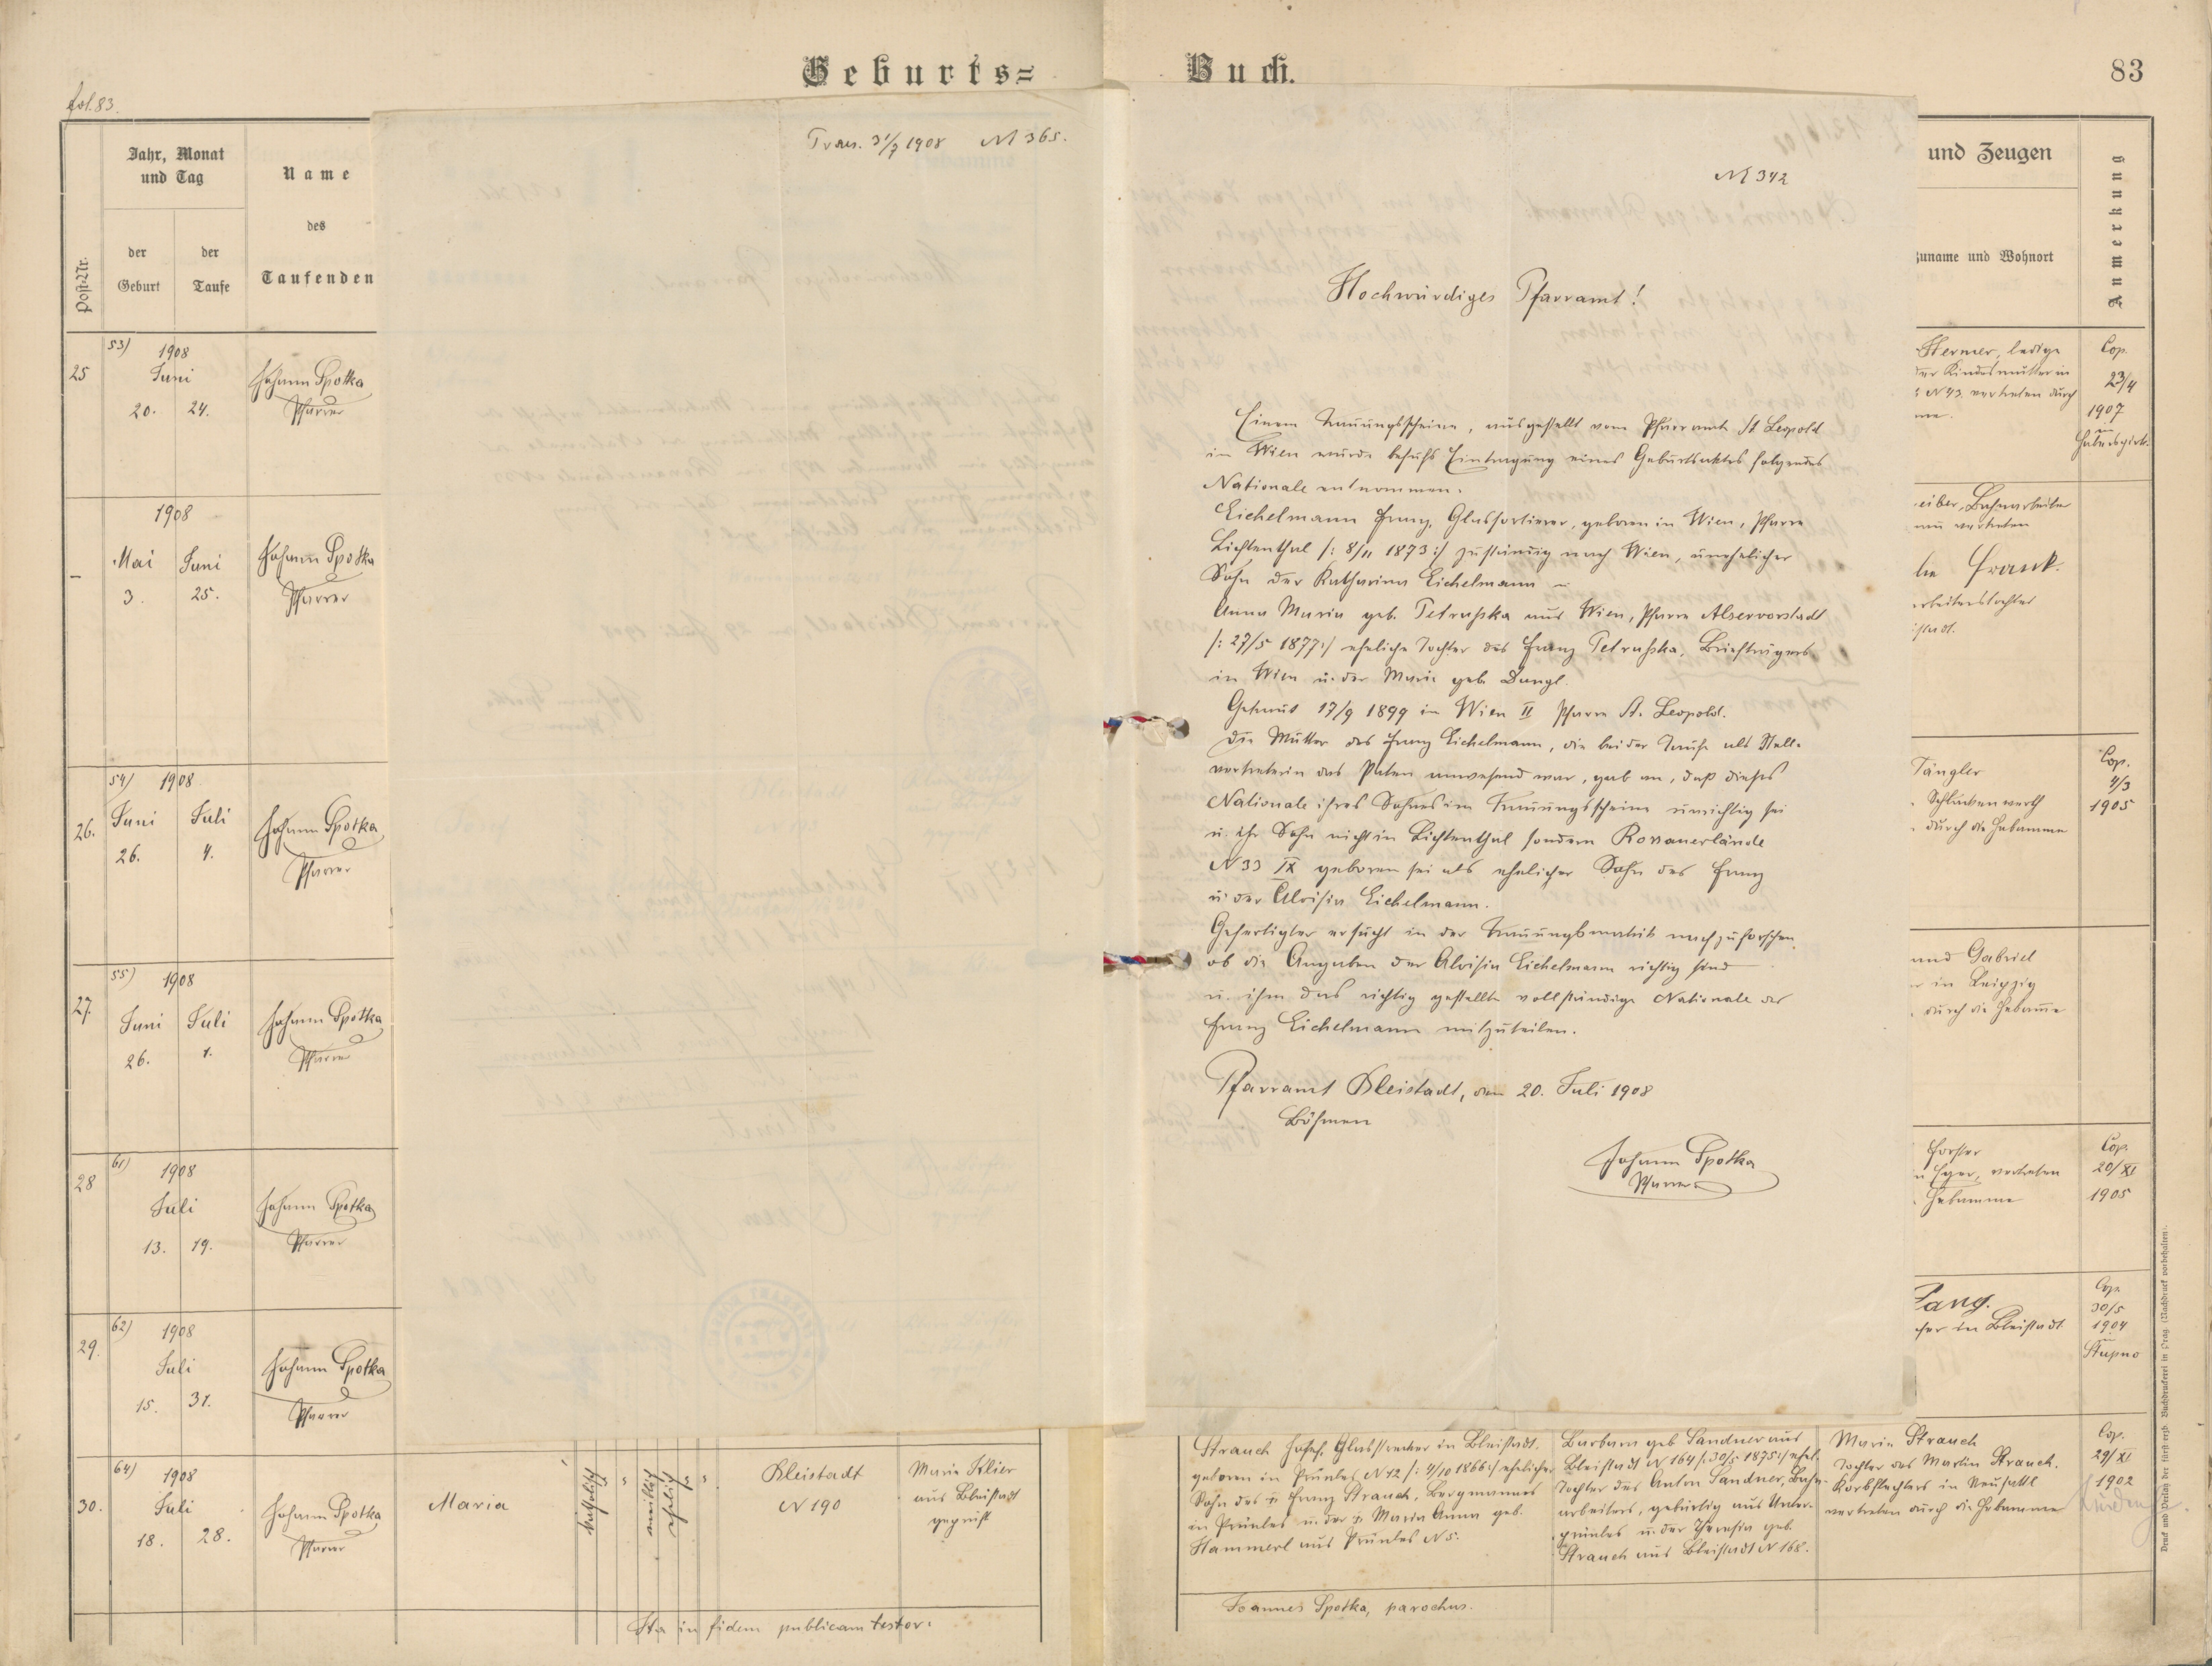 Geburts=
Buch.
83
fol. 83.
Post-Nr.
Jahr, Monat
und Tag
der
Geburt
der
Taufe
Name
des
Taufenden
und Zeugen
zuname und Wohnort
Anmerkung
25
53)
1908
Juni
20. 24.
Johann Spotka
Pfarrer
–
1908
Mai Juni
3. 25.
Johann Spotka
Pfarrer
26.
54) 1908
Juni Juli
26. 4.
Johann Spotka
Pfarrer
27.
55) 1908
Juni Juli
26. 1.
Johann Spotka
Pfarrer
28
61)
1908
Juli
13. 19.
Johann Spotka
Pfarrer
29.
62)
1908
Juli
15. 31.
Johann Spotka
Pfarrer
30.
64)
1908
Juli
18. 28.
Johann Spotka
Pfarrer
Maria
katholisch
weiblich
ehelich
Bleistadt
N 190
Marie Klier
aus Bleistadt
geprüft
Ita in fidem publicam testor:
Praes. 31/7 1908 N 365.
N 342
Hochwürdiges Pfarramt!
Einem Trauungsscheine, ausgestellt vom Pfarramte St Leopold
in Wien wurde behufs Eintragung eines Geburtsaktes folgendes
Nationale entnommen.
Eichelmann Franz, Glassortierer, geboren in Wien, Pfarre
Lichtenthal /: 8/11 1873 :/ zuständig nach Wien, unehelicher
Sohn der Katharina Eichelmann –
Anna Maria geb. Petruschka aus Wien, Pfarre Alservorstadt
/: 27/5 1877 :/ eheliche Tochter des Franz Petruschka, Briefträgers
in Wien u. der Marie geb. Dangl.
Getraut 17/9 1899 in Wien II Pfarre St. Leopold.
Die Mutter des Franz Eichelmann, die bei der Taufe als Stell-
vertreterin des Paten anwesend war, gab an, daß dieses
Nationale ihres Sohnes im Trauungsscheine unrichtig sei
u. ihr Sohn nicht in Lichtenthal sondern Rossauerlände
N 33 IX geboren sei als ehelicher Sohn des Franz
u. der Aloisia Eichelmann.
Gefertigter ersucht in der Trauungsmatrik nachzuforschen,
ob die Angaben der Aloisia Eichelmann richtig sind
u. ihm das richtig gestellte vollständige Nationale des
Franz Eichelmann mitzuteilen.
Pfarramt Bleistadt, den 20. Juli 1908
Böhmen
Johann Spotka
Pfarrer
Hermer, ledige
der Kindesmutter in
N 43. vertreten durch
Cop.
23/4
1907
in
Habersgirk.
Bahnarbeiter
vertreten
Frank.
Tängler
Schlackenwerth
durch die Hebamme
Cop.
4/3
1905
und Gabriel
in Leipzig
durch die Hebamme
Forster
Eger, vertreten
Hebamme
Cop.
20/XI
1905
Lang.
in Bleistadt
Cop.
30/5
1904
in
Stupno
Strauch Josef, Glasstrecker in Bleistadt,
geboren in Prünles N 42 /: 4/10 1866 :/ ehelicher
Sohn des † Franz Strauch, Bergmannes
in Prünles u. der † Maria Anna geb.
Hammerl aus Prünles N 5.
Barbara geb Sandner aus
Bleistadt N 164 /: 30/5 1875 :/ ehel.
Tochter des Anton Sandner, Bahn-
arbeiters, gebürtig aus Unter-
prünles u. der Theresia geb.
Strauch aus Bleistadt N 168.
Marie Strauch
Tochter des Martin Strauch,
Korbflechters in Neusattl
vertreten durch die Hebamme
Cop.
29/XI
1902
Joannes Spotka, parochus.
Druck und Verlag der fürst-erzb. Buchdruckerei in Prag. (Nachdruck vorbehalten).